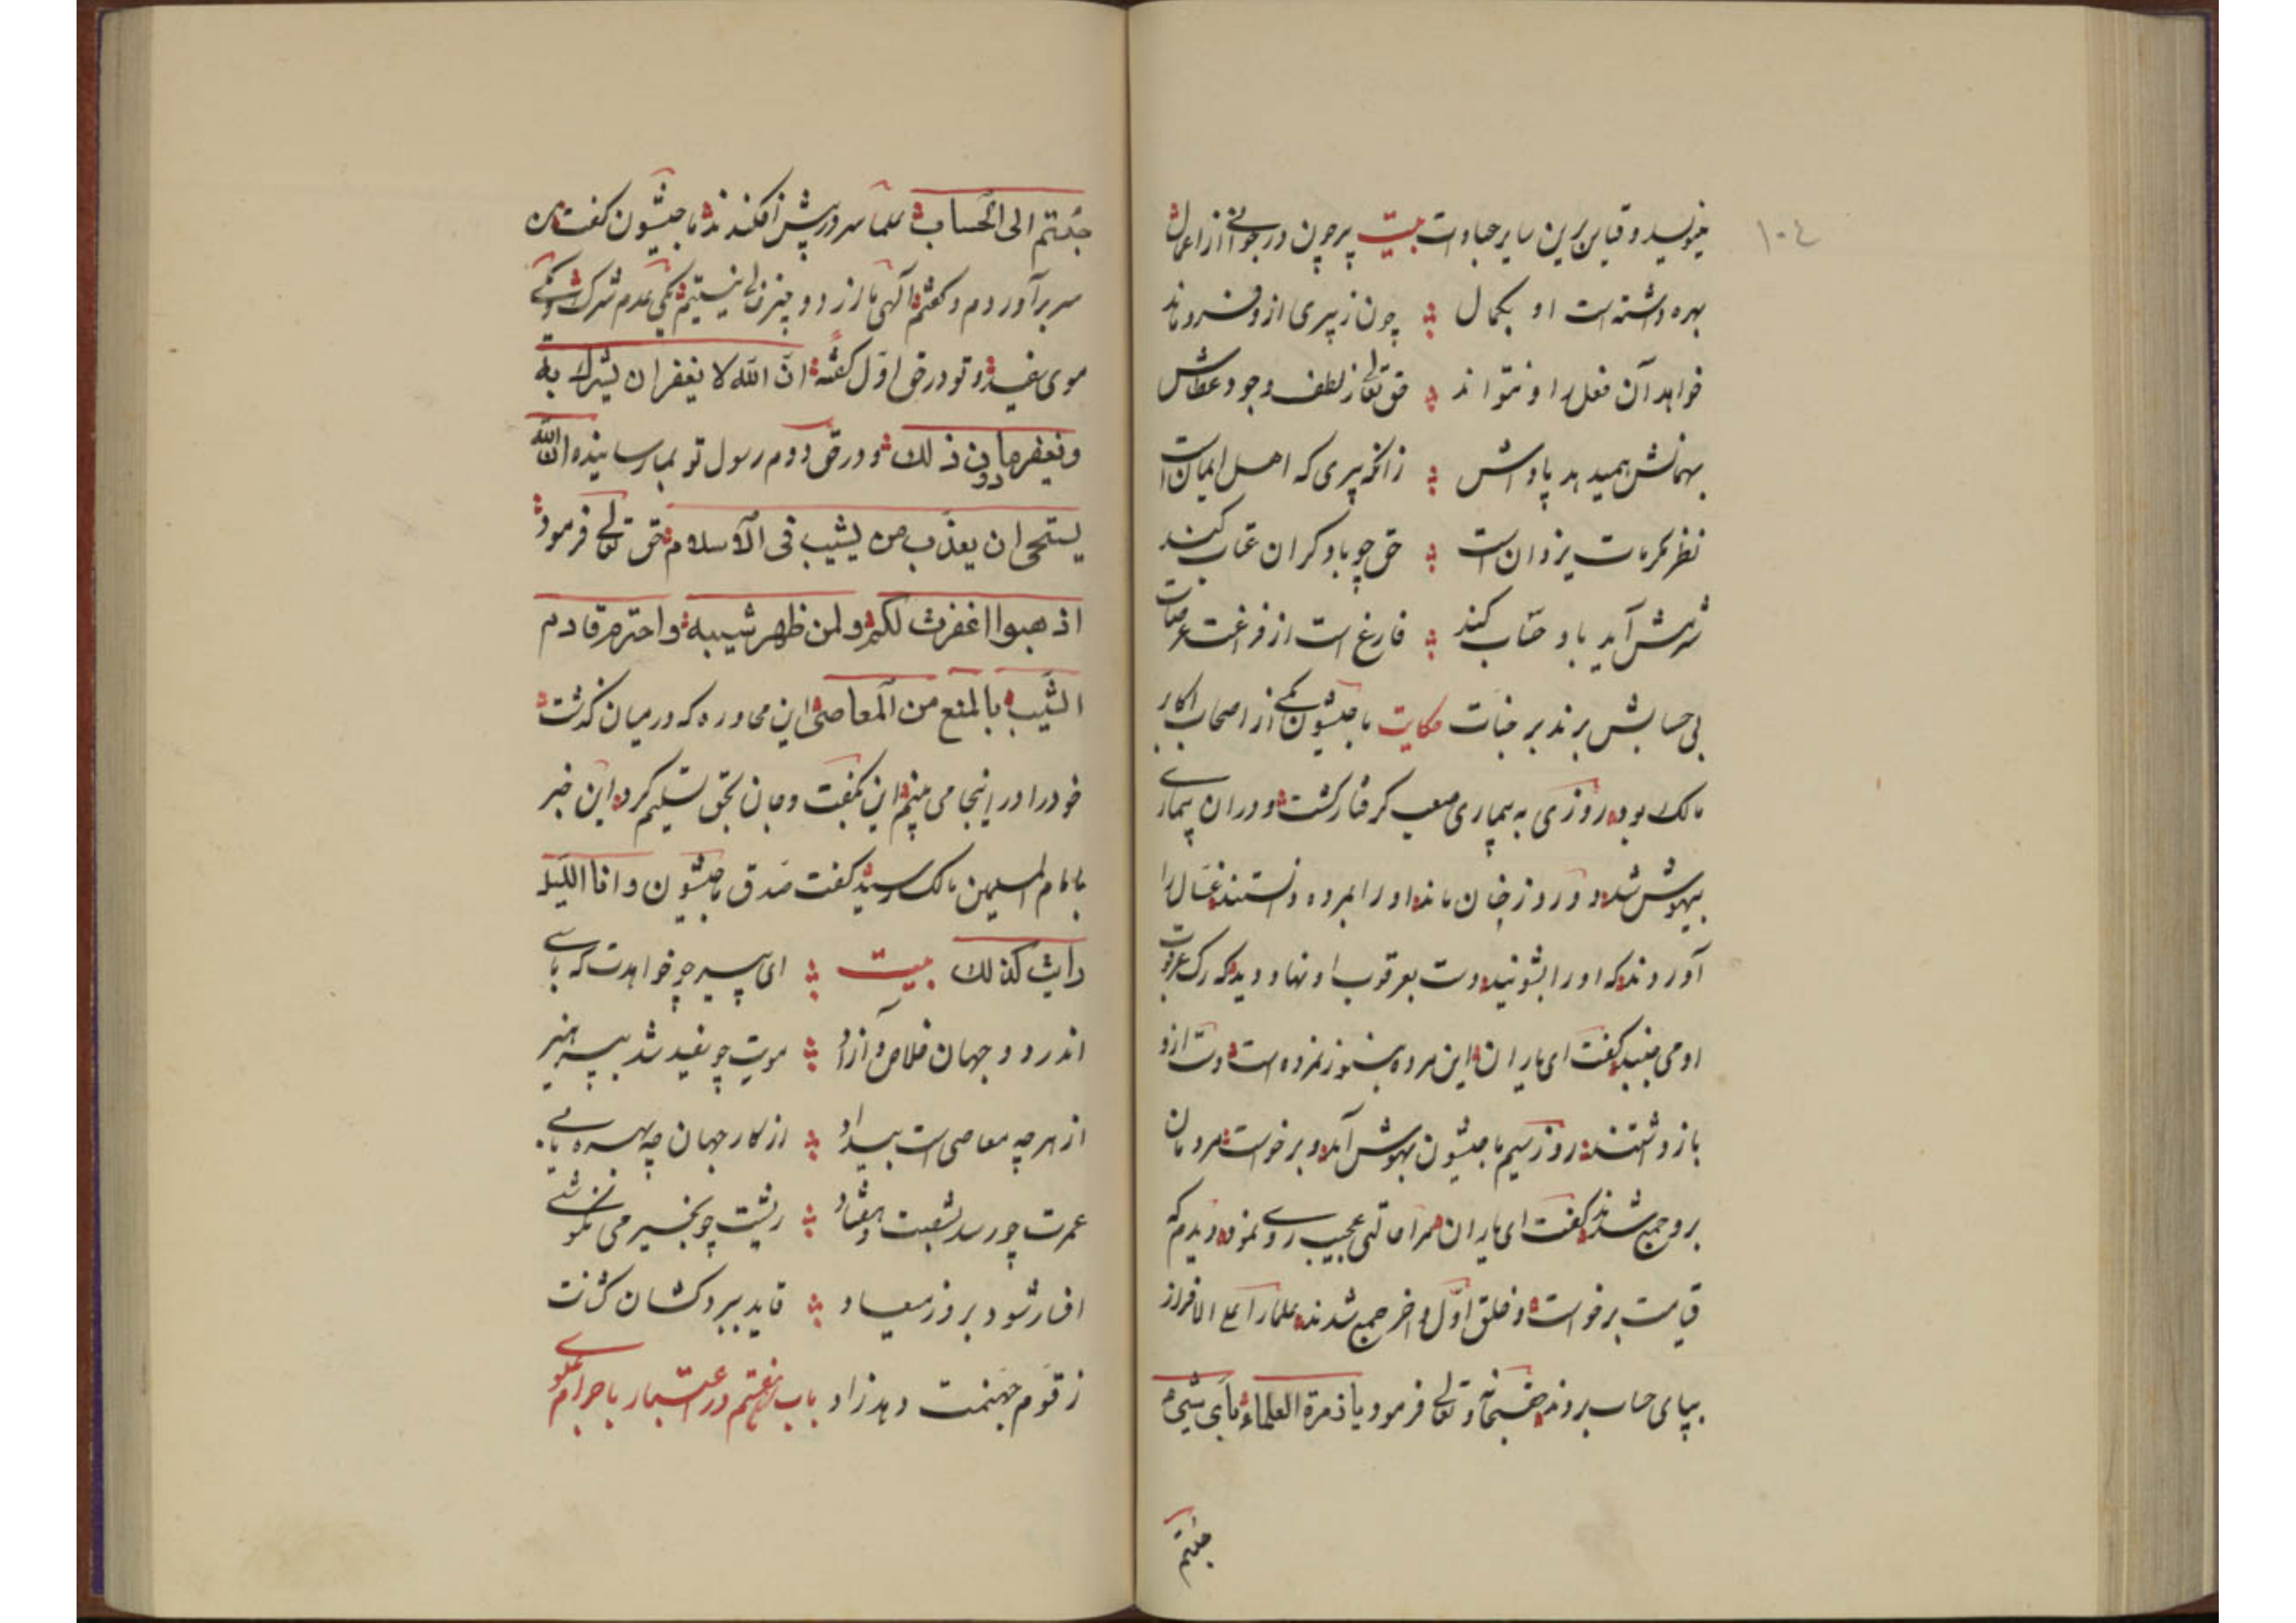 ۱۰٤
مینویسد و قیاس برین سایر عبادات بیت پیر چون در جوانی از اعمال
بهره داشته است او بکمال ؞ چون ز پیری ازو فرو ماند
خواهد آن فعل را و نتواند ؞ حق تعالی ز لطف وجود عطاش
بهمانش همیدهد پاداش ؞ زانکه پیری که اهل ایمان است
نظر مکرمات یزدان است ؞ حق چو با دیگران عتاب کند
شرمش آید باو حساب کند ؞ فارغ است از فزاعت عرصات
بی حسابش برند بر جنات حکایت ماجیشون یکی از اصحاب اکابر
مالک بود روزی به بیماری صعب گرفتار گشت و در ان بیماری
بیهوش شد دو روز چنان ماند او را مرده دانستند غسال را
آوردند که او را بشوئید دست بعرقوب او نهاد و دید که رگ عرقوب
او می جنبید گفت ای یاران این مرده هنوز نمرده است دست ازو
باز داشتند روز سیم ماجیشون بهوش آمد و برخواست مردمان
برو جمع شدند گفت ای یاران مرا حالتی عجیب روی نمود دیدم که
قیامت برخواست و خلق اول و اخر جمع شدند علما را علی الافراز
بپای حساب بردند حق سبحانه و تعالی فرمود یا زمرة العلماء بأی شیء
جئتم
جئتم الی الحساب علما سر در پیش افکندند ماجیشون گفت من
سر برآوردم و گفتم آلهی ما از دو چیز خالی نیستیم یکی عدم شرک و یکی
موی سفید و تو در حق اول گفته ان الله لا یغفر ان یشرك به
ویغفر ما دون ذلك و در حق دوم رسول تو بما رسانیده ان الله
یستحی ان یعذب من یشیب فی الاسلام حق تعالی فرمود
اذهبوا اغفرت لکم ولمن ظهر شیبه واحترم قادم
الشیب بالمنع من المعاصی این محاوره که در میان گذشت
خود را در اینجا می بینم این بگفت و جان بحق تسلیم کرد این خبر
بامام المسلمین مالک رسید گفت صدق ماجیشون وانا اللیلة
رأیت کذلك بیت ؞ ای پیر چو خواهدت که باشی
اندر دو جهان خلاص و آزاد ؞ مویت چو سفید شد بپرهیز
از هر چه معاصی است بیداد ؞ از کار جهان چه بهره یابی
عمرت چو رسد بشصت و هفتاد ؞ زشت چو بخیر می نکوشی
افسار شود بروز میعاد ؞ قاید ببرد کشان کشانت
زقوم جهنمت دهد زاد باب هفتم در اعتبار با جرام علوی